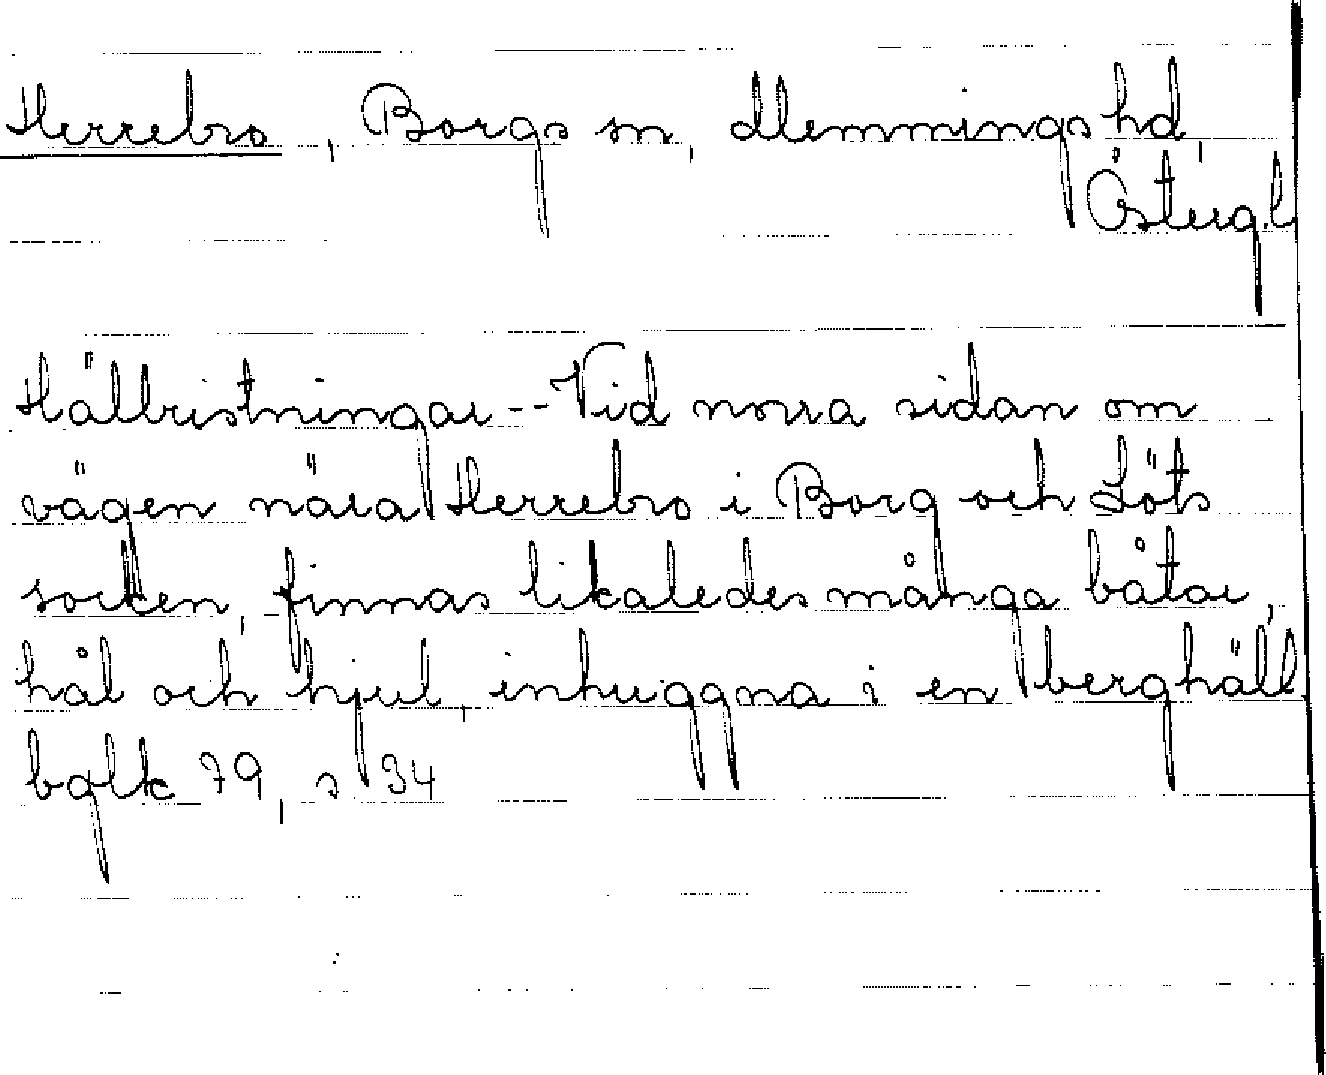 Herrebro, Borgs sn, Memmings hd,
Östergl.
Hällristningar -- Vid norra sidan om
vägen nära Herrebro i Borg och Löts
socken, finnas likaledes många båtar,
hål och hjul, inhuggna i en berghäll.
bqlk 79, s 34